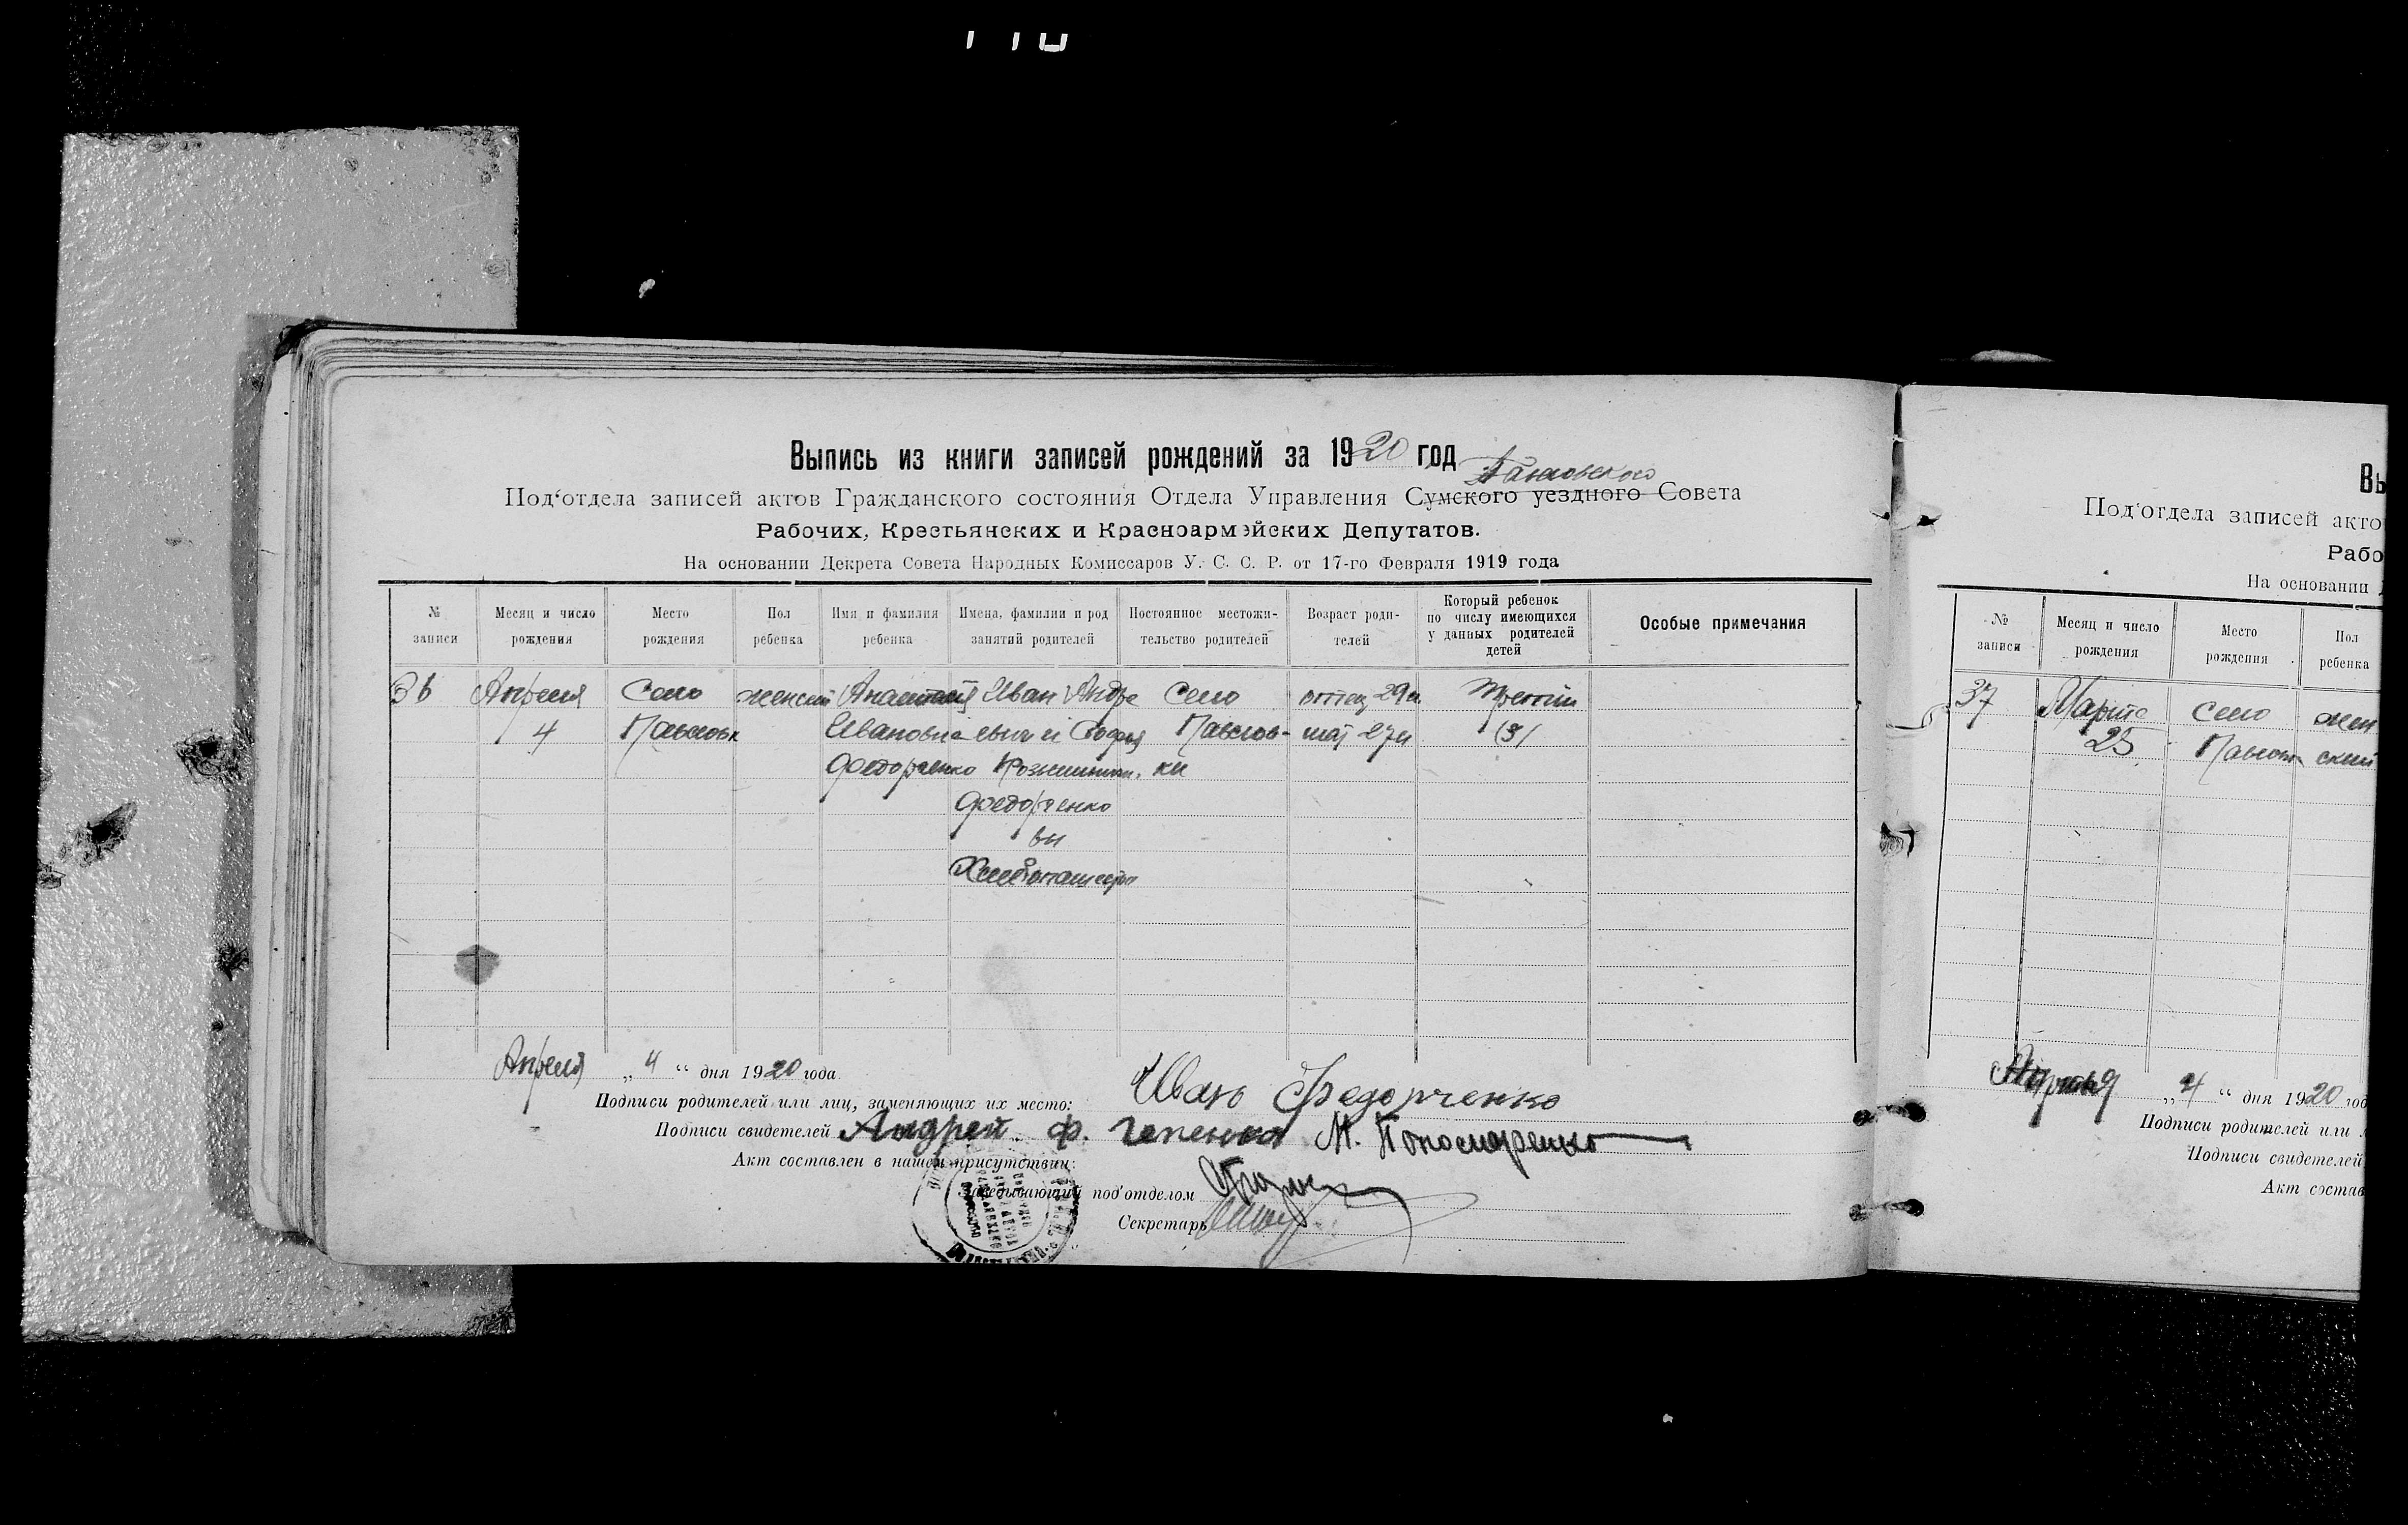 Выпись из книги записей рождений за 1920 год
Под‘отдела записей актов Гражданского состояния Отдела Управления Сумского уездного Совета
Рабочих, Крестьянских и Красноармейских Депутатов.
На основании Декрета Совета Народных Комиссаров У. С. С. Р. от 17-го Февраля 1919 года
№ записи
Месяц и число рождения
Место рождения
Пол ребенка
Имя и фамилия ребенка
Имена, фамилии и род занятий родителей
Постоянное местожи-тельство родителей
Возраст роди-телей
Который ребенок по числу имеющихся у данных родителей детей
Особые примечания
36
Апреля
4
Село
Павловк
женский
Анастасия
Ивановна
Федорченко
Иван Андре
евич и Софья
Федорченко
вы
Хлебопашество
Село
Павлов-
ки
отец 29 л.
мат 27 л
третий
(3)
Апреля „4“ дня 1920 года.
Подписи родителей или лиц, заменяющих их место: Иван Федорченко
Подписи свидетелей Андрей Ф. Чепенко М. Пономаренко
Акт составлен в нашем присутствии:
Заведывающий под‘отделом
Секретарь
Вы
Под‘отдела записей акто
Рабо
На основании Д
№ записи
Месяц и число рождения
Место рождения
Пол ребенка
37
Марта
25
Село
Павловк
жен
ский
„4“ дня 1920 год
Подписи родителей или л
Подписи свидетелей
Акт состав